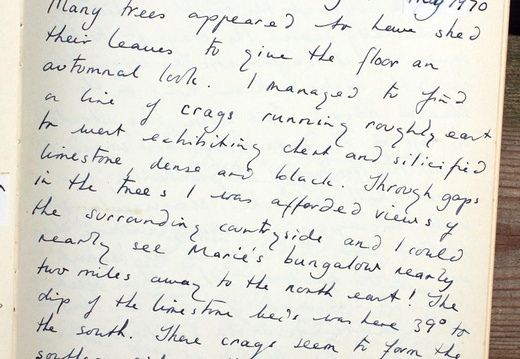 May 1970
Many trees appeared to have shed
their leaves to give the floor an
automnal look. I managed to find
a line of crags running roughly east
to west exhibiting chert and silicified
limestone, dense and black. Through gaps
in the trees I was afforded views of
the surrounding countryside and I could
nearly see Marie's bungalow nearly
two miles away to the north east! The
dip of the limestone beds was here 39° to
the south. These crags seem to form the